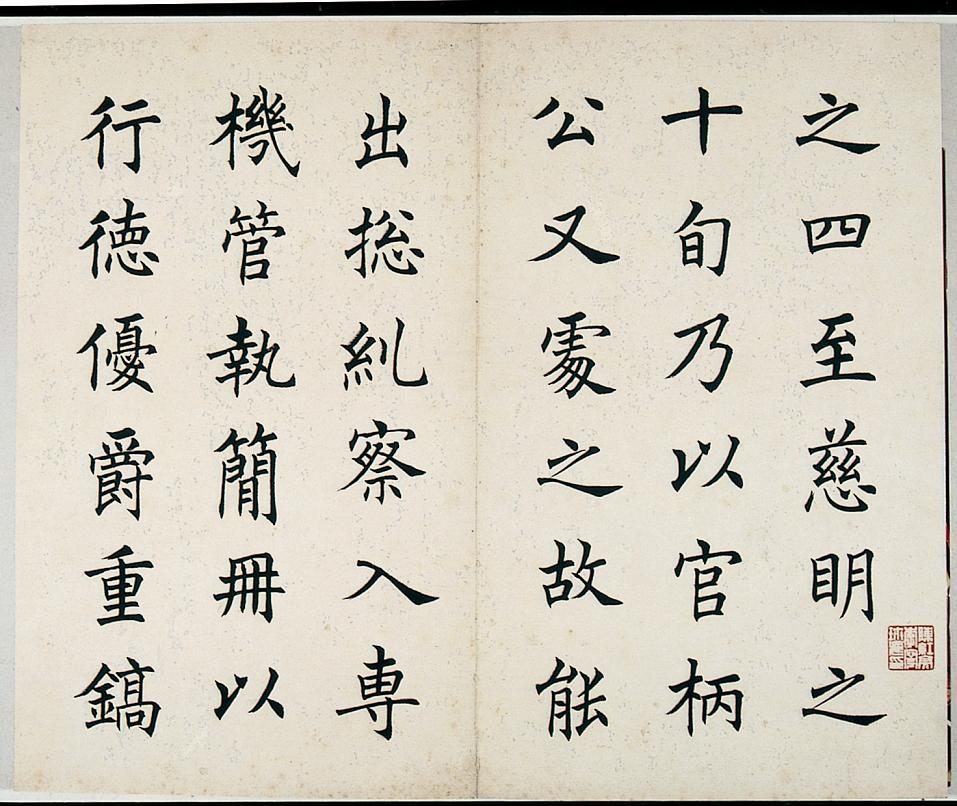 之四至慈明之
十旬乃以官柄
公又處之故能
出捴糺察入専
機管執簡冊以
行徳優爵重鎬